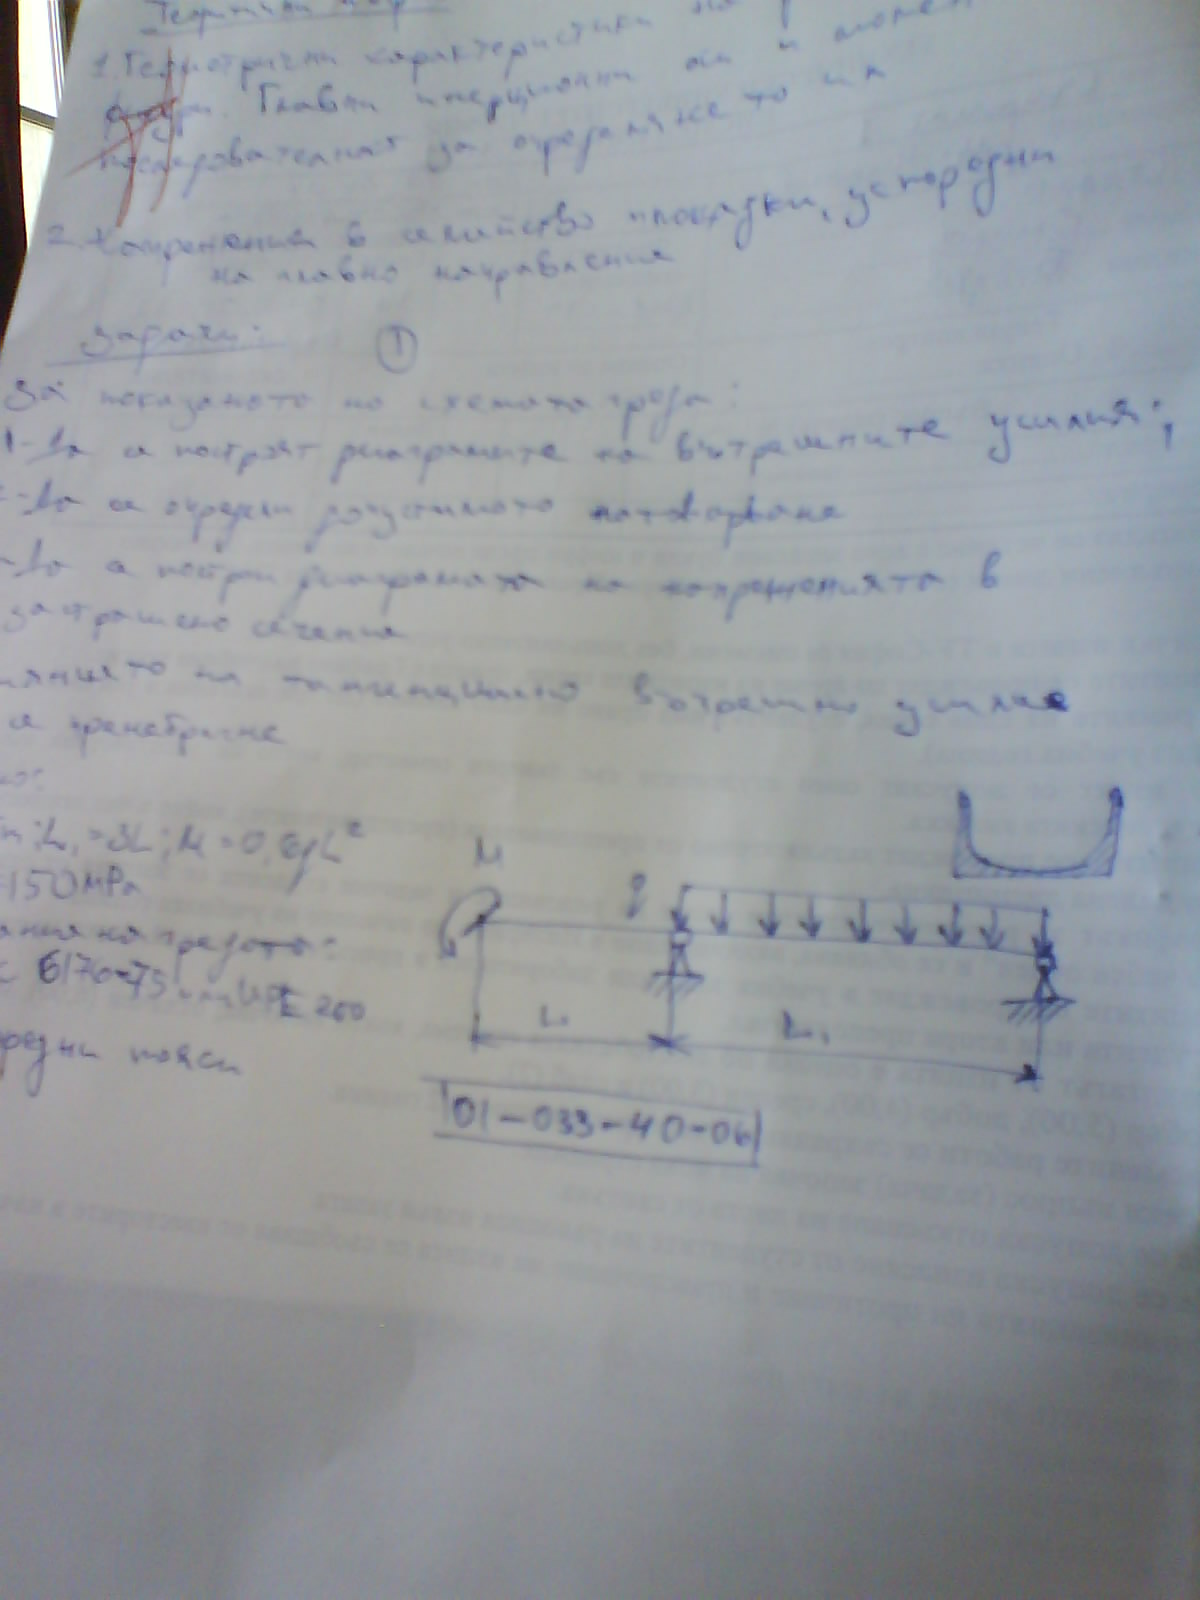 Теоритични
1. Геометрични характеристики на
фигури. Главни инерционни оси и момен
последователност за определянето им
2. Напрежения в семейство площадки, успоредни
на главно направление
Задачи: 1
За показаното на схемата греда:
1 - Да се построят диаграмите на вътрешните усилия;
- Да се определи допустимото натоварване
- Да се построи диаграмата на напреженията в
застрашено сечение
на тангенциалното вътрешно усилие
се пренебрегне
L₁ = 3L; M = 0,6qL²
150 MPa
на гредата:
6176-75 UPE 200
пояси
M
q
L
L₁
01-033-40-06